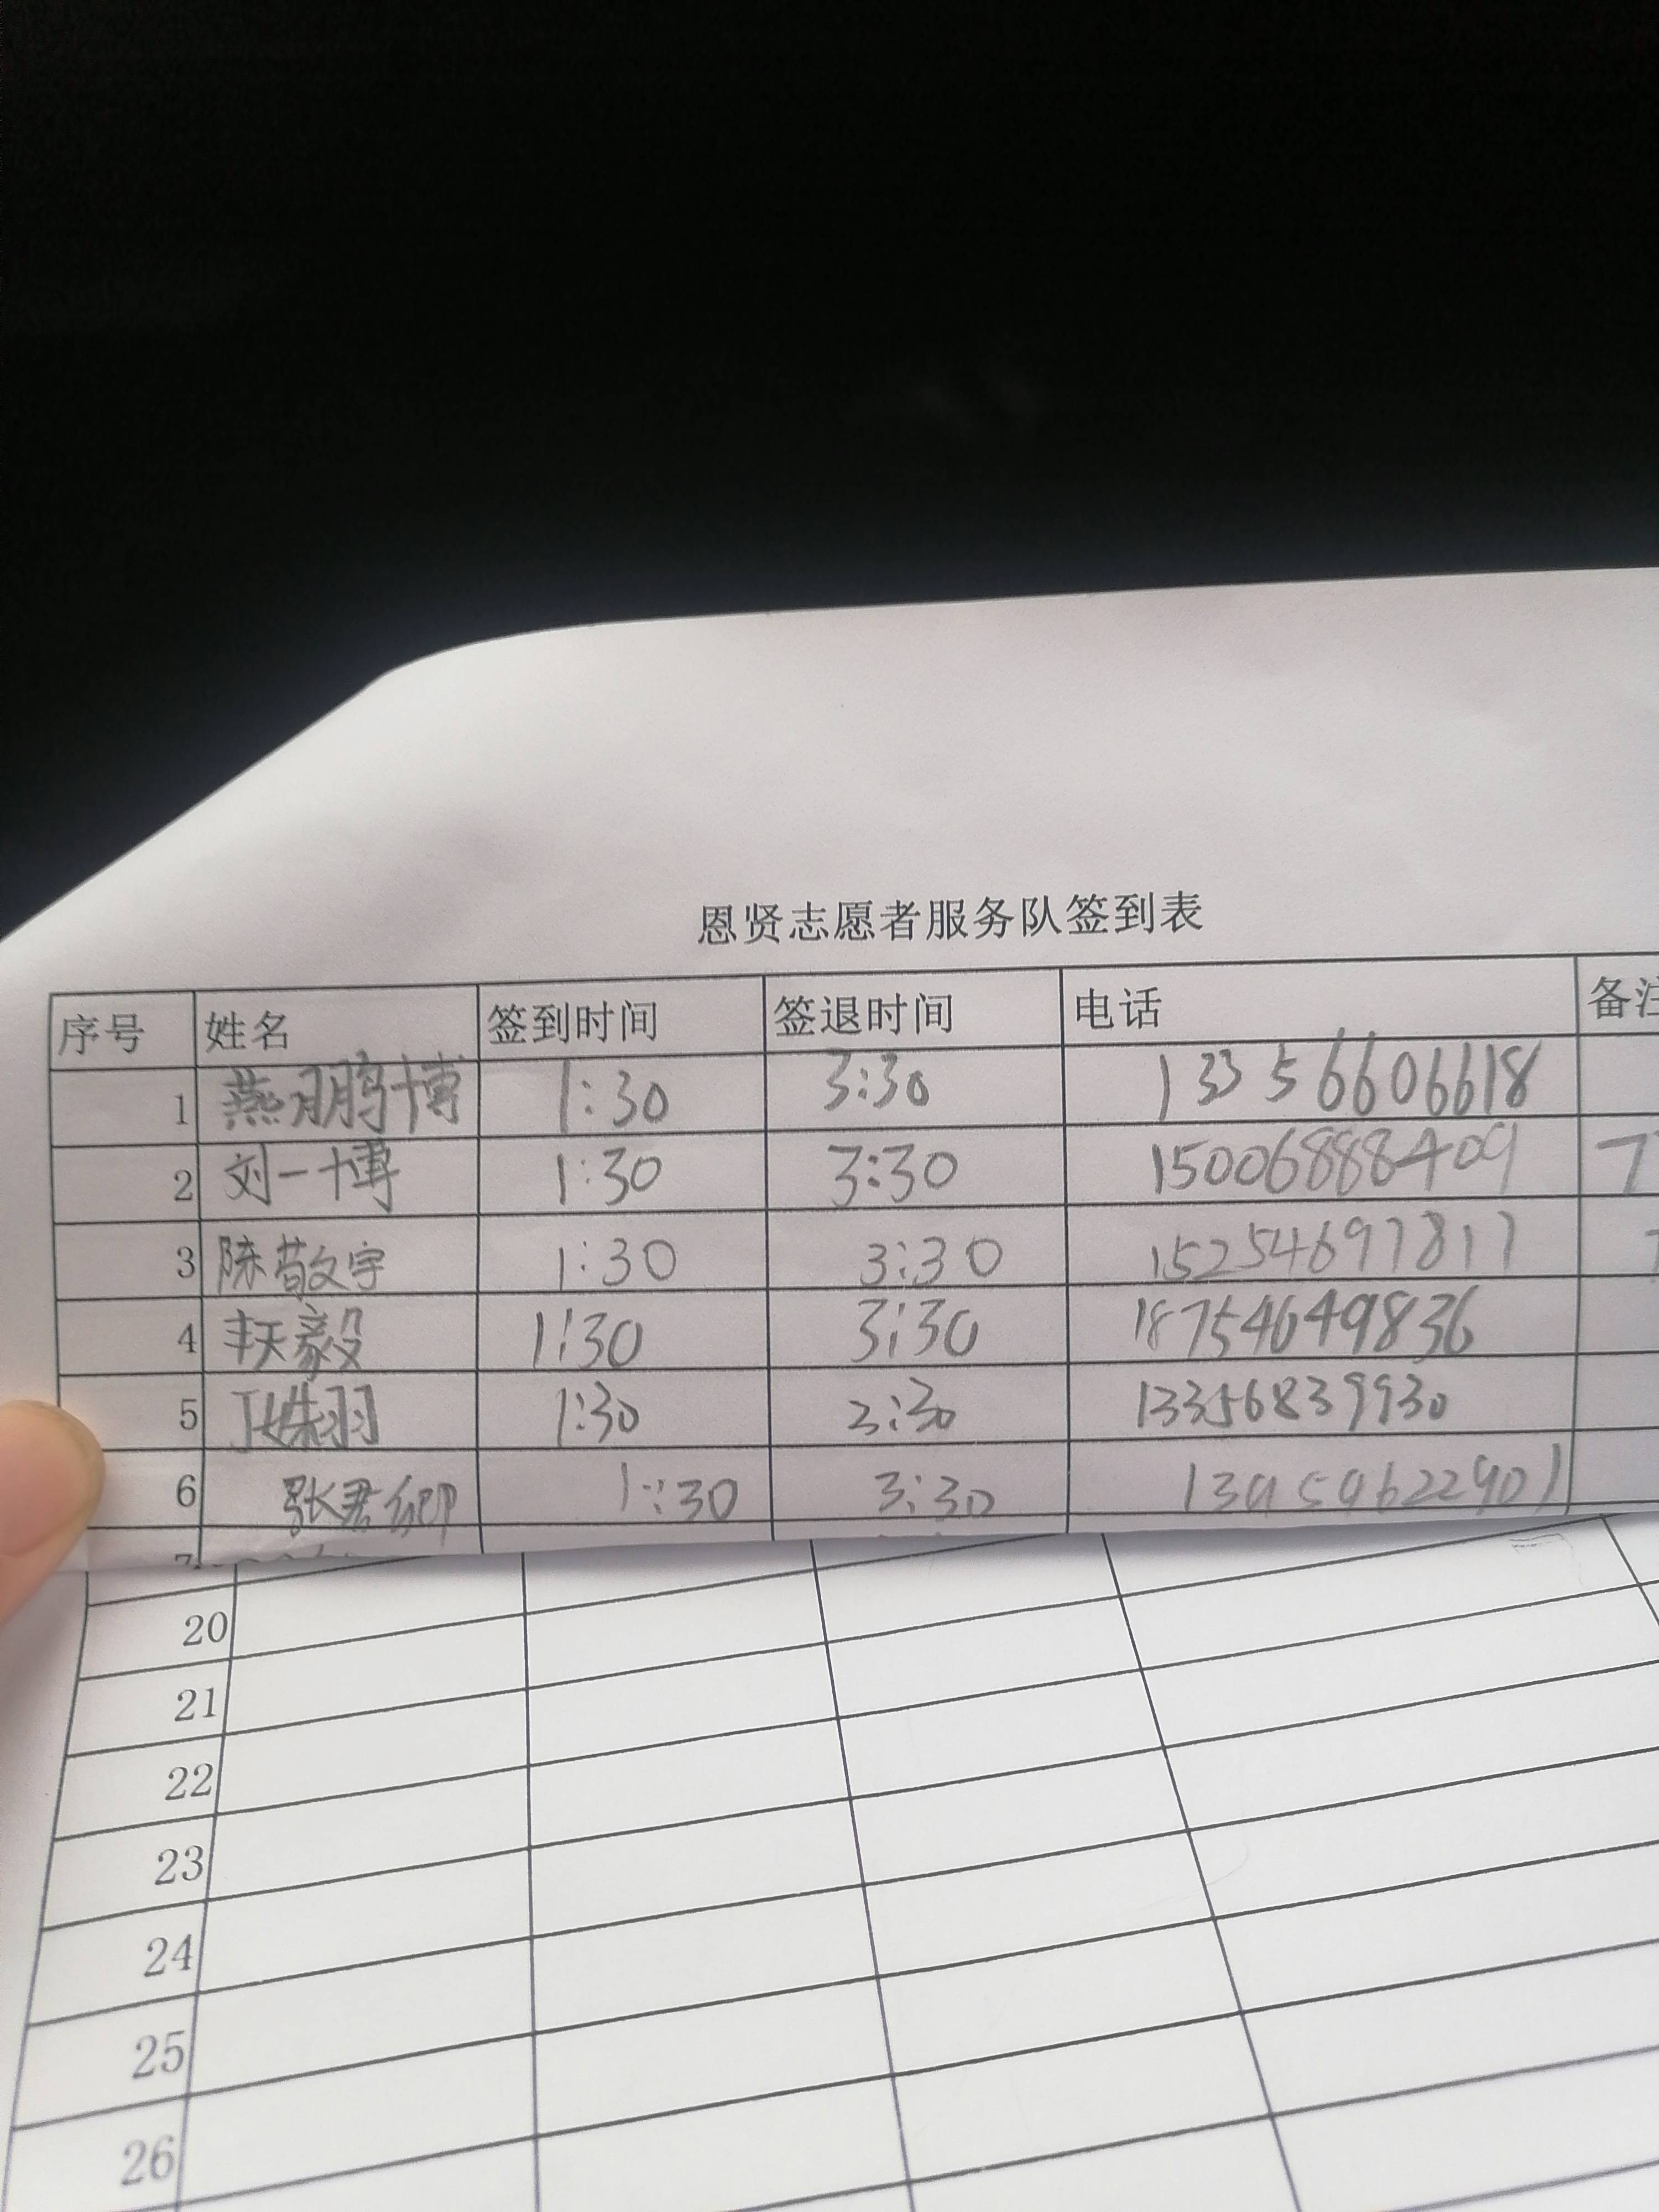 恩贤志愿者服务队签到表
序号 姓名 签到时间 签退时间 电话 备注
1 燕鹏博 1:30 3:30 13356606618
2 刘一博 1:30 3:30 15006888409
3 陈敬宇 1:30 3:30 15254697817
4 毅 1:30 3:30 18754649836
5 丁姝羽 1:30 3:30 13356839930
6 张君 1:30 3:30 13959622901
20
21
22
23
24
25
26